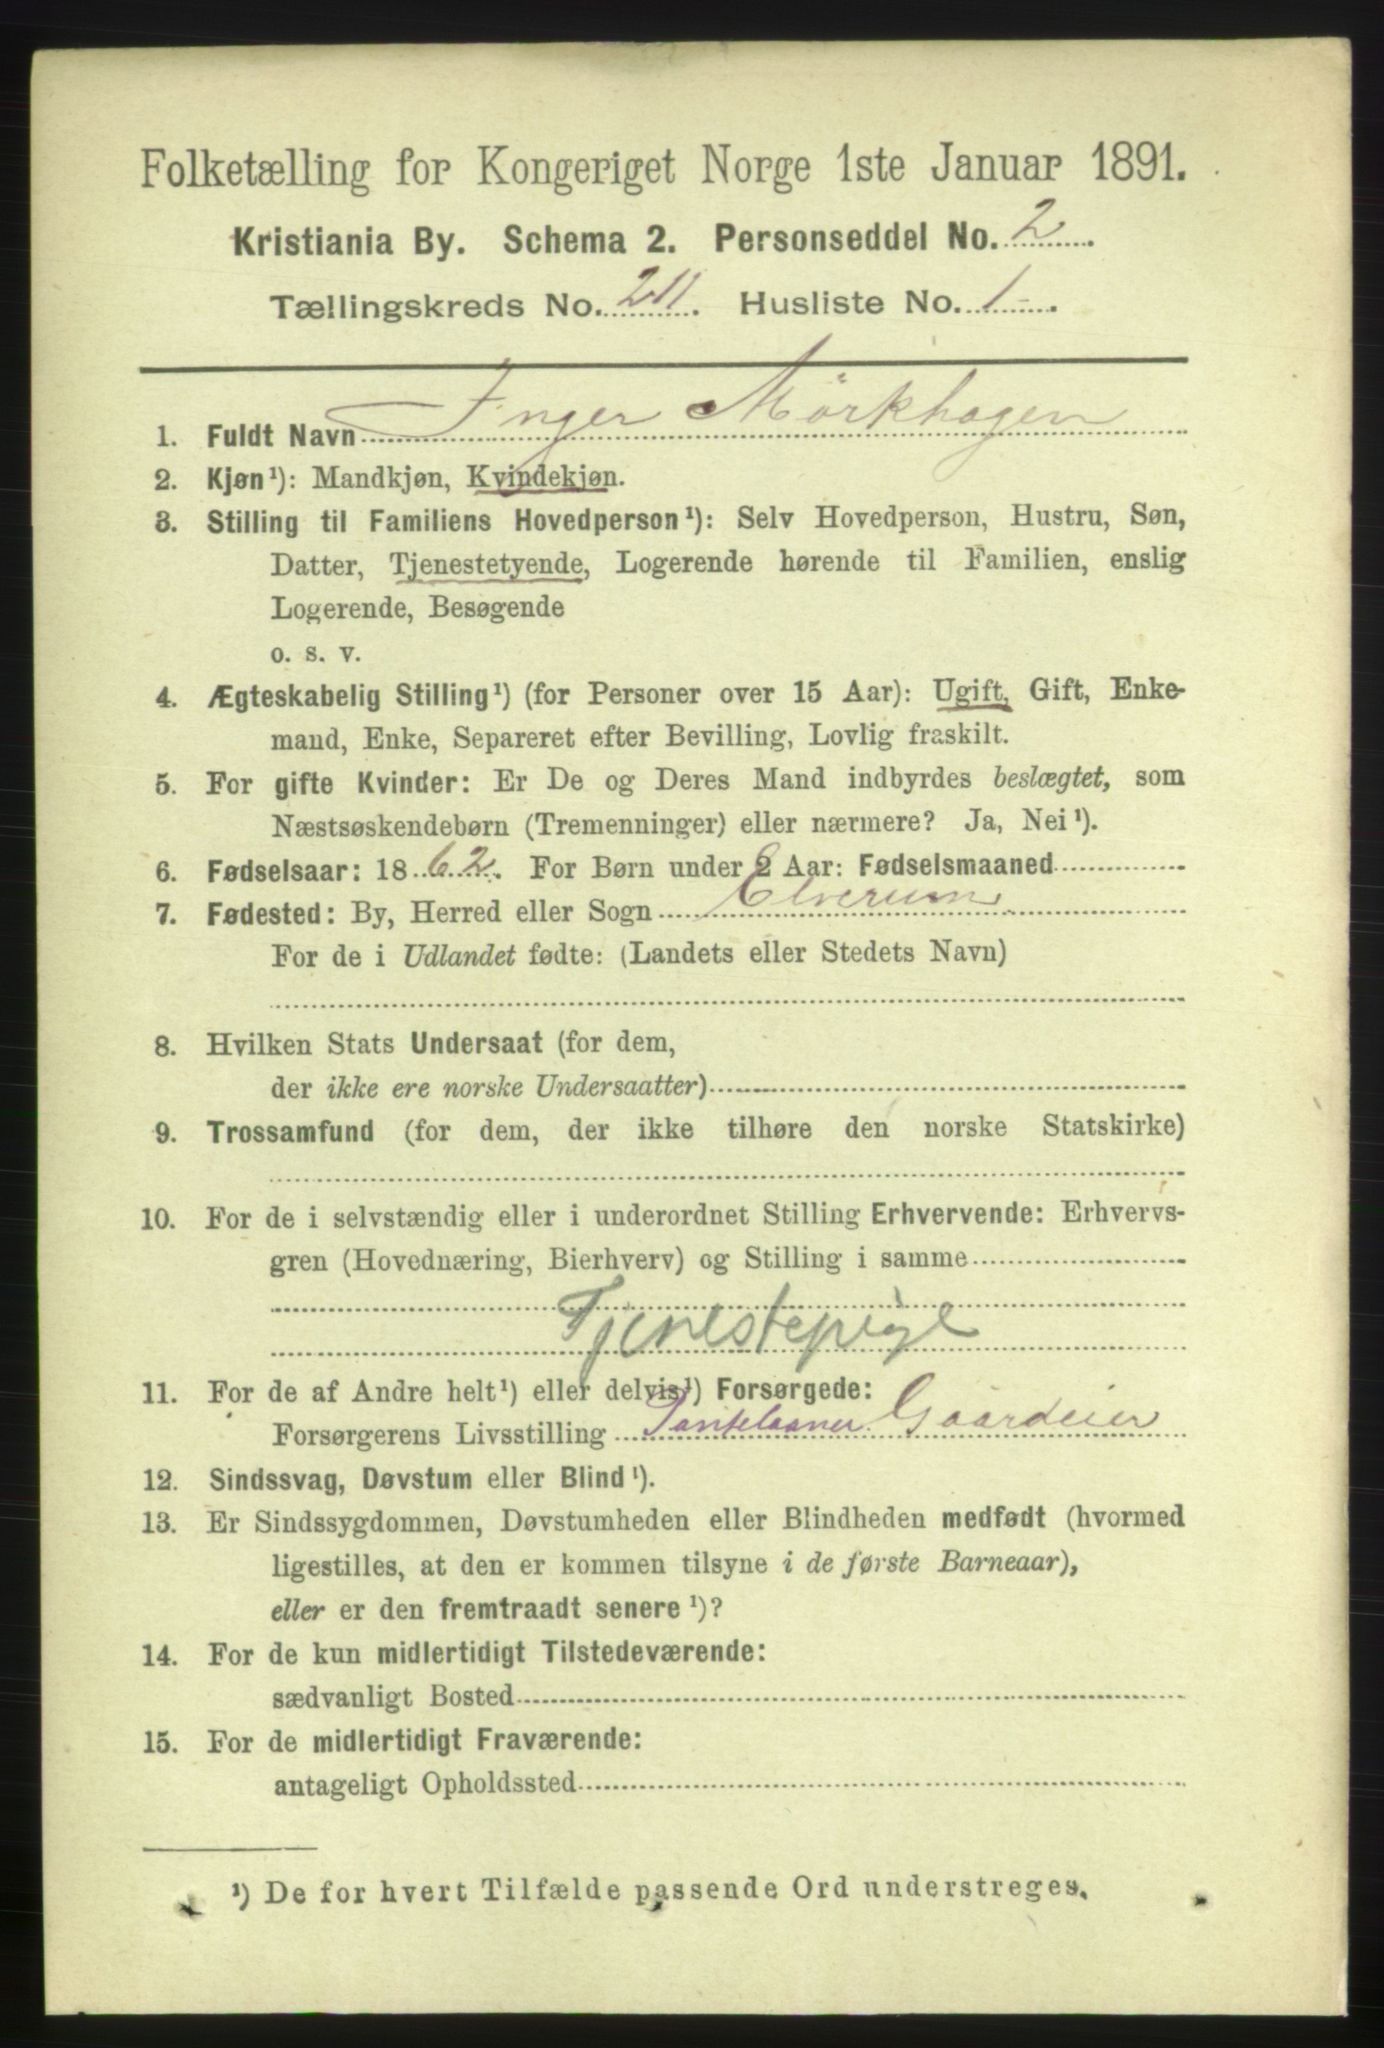 Folketælling for Kongeriget Norge 1ste Januar 1891.
Kristiania By. Schema 2. Personseddel No. 2
Tællingskreds No. 211. Husliste No. 1
1. Fuldt Navn Inger Mörkhagen
2. Kjøn¹): Mandkjøn, Kvindekjøn.
3. Stilling til Familiens Hovedperson¹): Selv Hovedperson, Hustru, Søn,
Datter, Tjenestetyende, Logerende hørende til Familien, enslig
Logerende, Besøgende
o. s. v.
4. Ægteskabelig Stilling¹) (for Personer over 15 Aar): Ugift, Gift, Enke-
mand, Enke, Separeret efter Bevilling, Lovlig fraskilt.
5. For gifte Kvinder: Er De og Deres Mand indbyrdes beslægtet, som
Næstsøskendebørn (Tremenninger) eller nærmere? Ja, Nei¹).
6. Fødselsaar: 1862. For Børn under 2 Aar: Fødselsmaaned
7. Fødested: By, Herred eller Sogn Elverum
For de i Udlandet fødte: (Landets eller Stedets Navn)
8. Hvilken Stats Undersaat (for dem,
der ikke ere norske Undersaatter)
9. Trossamfund (for dem, der ikke tilhøre den norske Statskirke)
10. For de i selvstændig eller i underordnet Stilling Erhvervende: Erhvervs-
gren (Hovednæring, Bierhverv) og Stilling i samme
Tjenestepige
11. For de af Andre helt¹) eller delvis¹) Forsørgede:
Forsørgerens Livsstilling Pantelaaner Gaardeier
12. Sindssvag, Døvstum eller Blind¹).
13. Er Sindssygdommen, Døvstumheden eller Blindheden medfødt (hvormed
ligestilles, at den er kommen tilsyne i de første Barneaar),
eller er den fremtraadt senere¹)?
14. For de kun midlertidigt Tilstedeværende:
sædvanligt Bosted
15. For de midlertidigt Fraværende:
antageligt Opholdssted
¹) De for hvert Tilfælde passende Ord understreges.